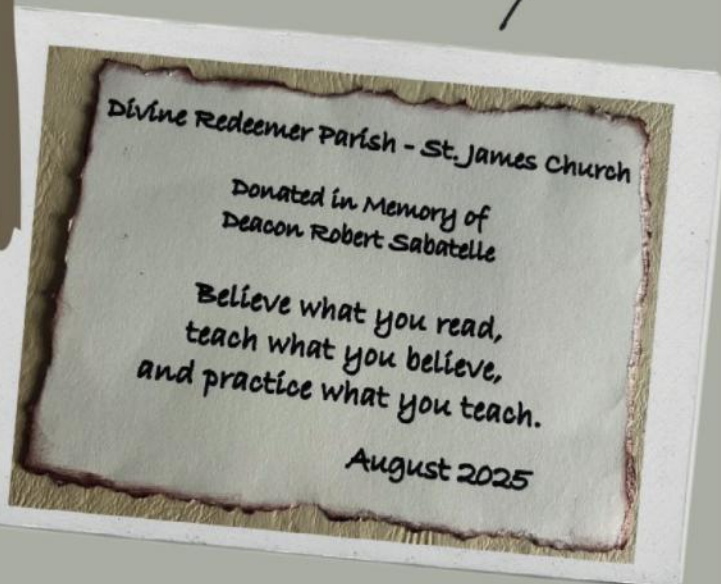 Divine Redeemer Parish - St. James Church
Donated in Memory of
Deacon Robert Sabatelle
Believe what you read,
teach what you believe,
and practice what you teach.
August 2025